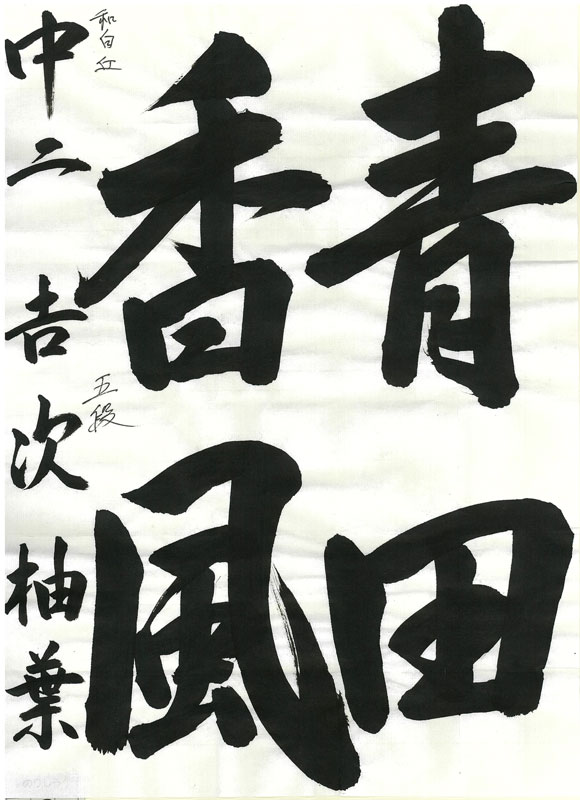 青田
香風
和白丘
五段
中二 吉次柚葉